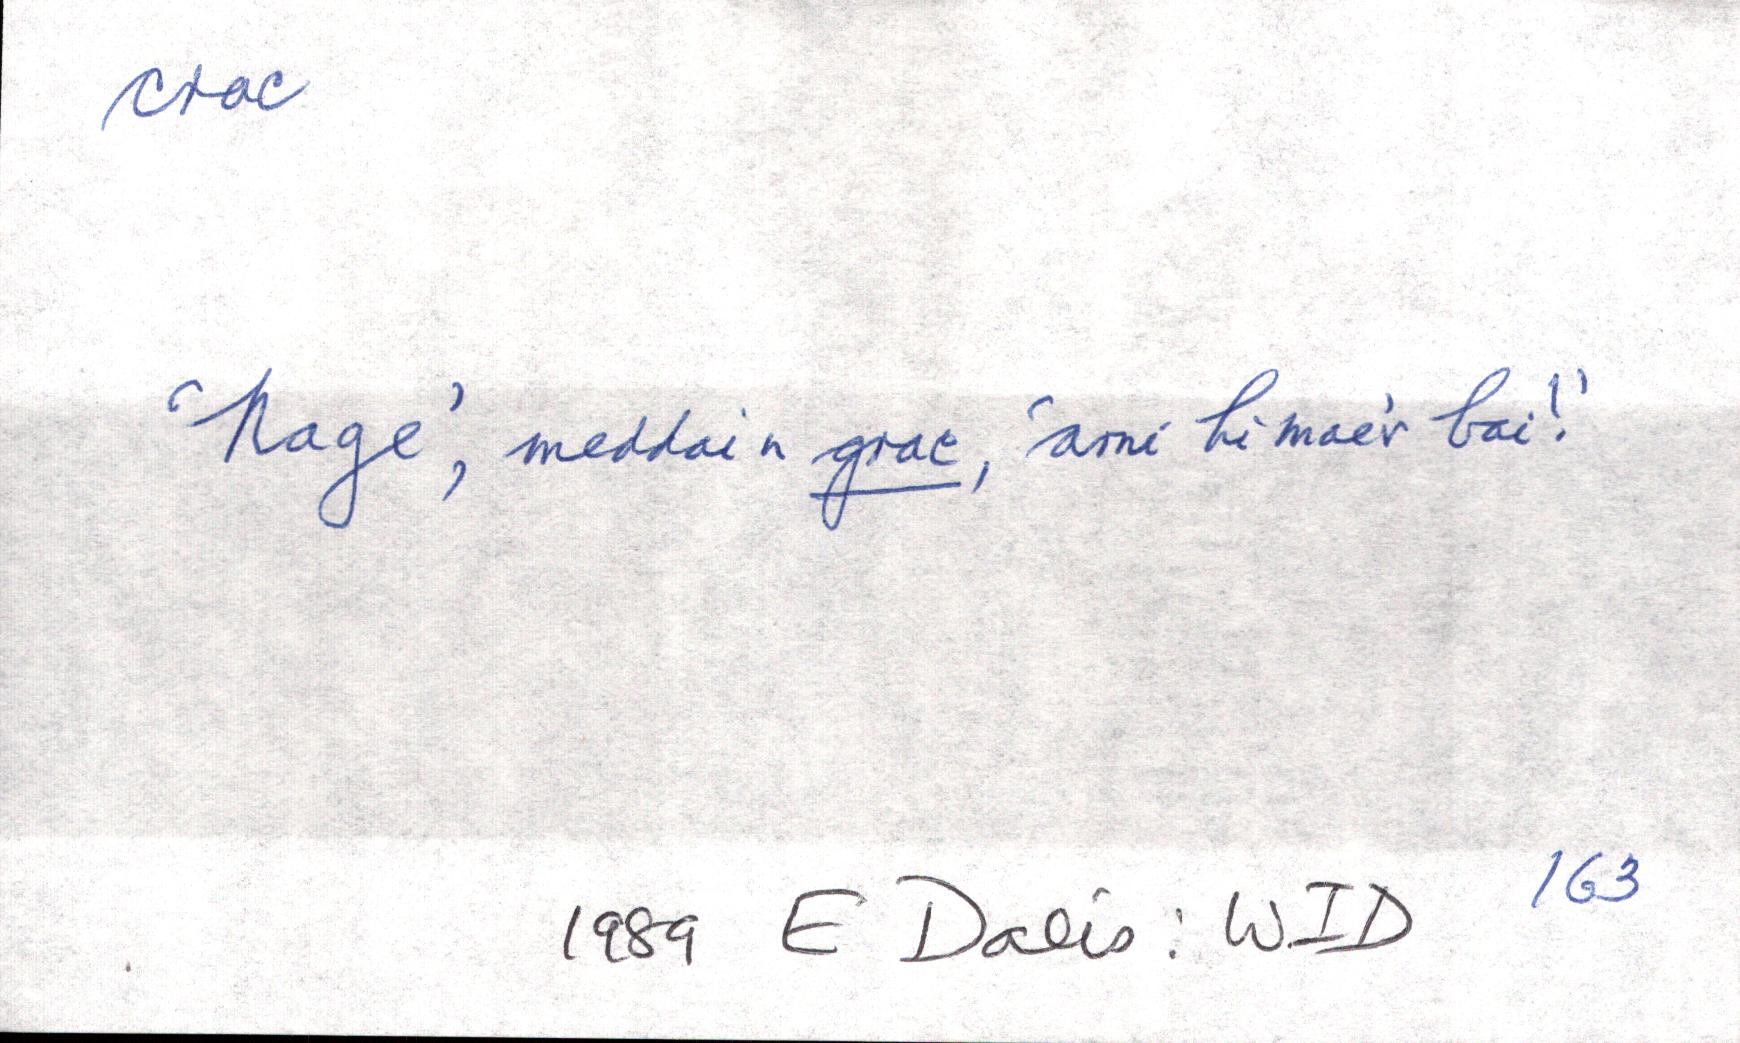 crac
'Nage', meddai n grac, 'arni hi mae'r bai!'
163
1989 E Dalis: WID